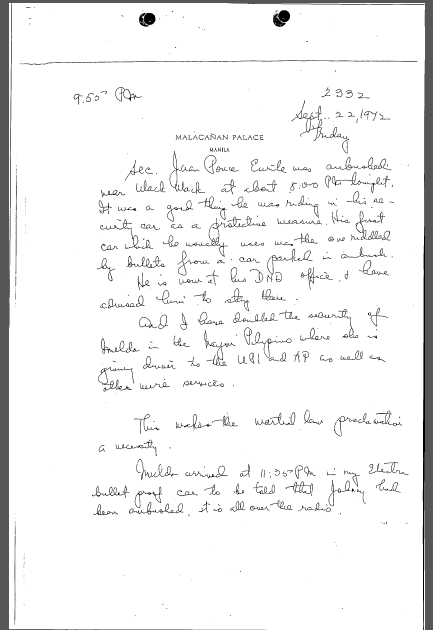 9:55 PM
2332
Sept. 22, 1972
Friday
MALACAÑAN PALACE
MANILA
Sec. Juan Ponce Enrile was ambushed
near Wack Wack at about 8:00 PM tonight.
It was a good thing he was riding in his se-
curity car as a protective measure. His first
car which he usually uses was the one riddled
by bullets from a car parked in ambush.
He is now at his DND office. I have
advised him to stay there.
And I have doubled the security of
Imelda in the Nayon Pilipino where she is
giving dinner to the UPI and AP as well as
other wire services.
This makes the martial law proclamation
a necessity.
Imelda arrived at 11:35 PM in my Electra
bullet proof car to be told that Johnny had
been ambushed, it is all over the radio.